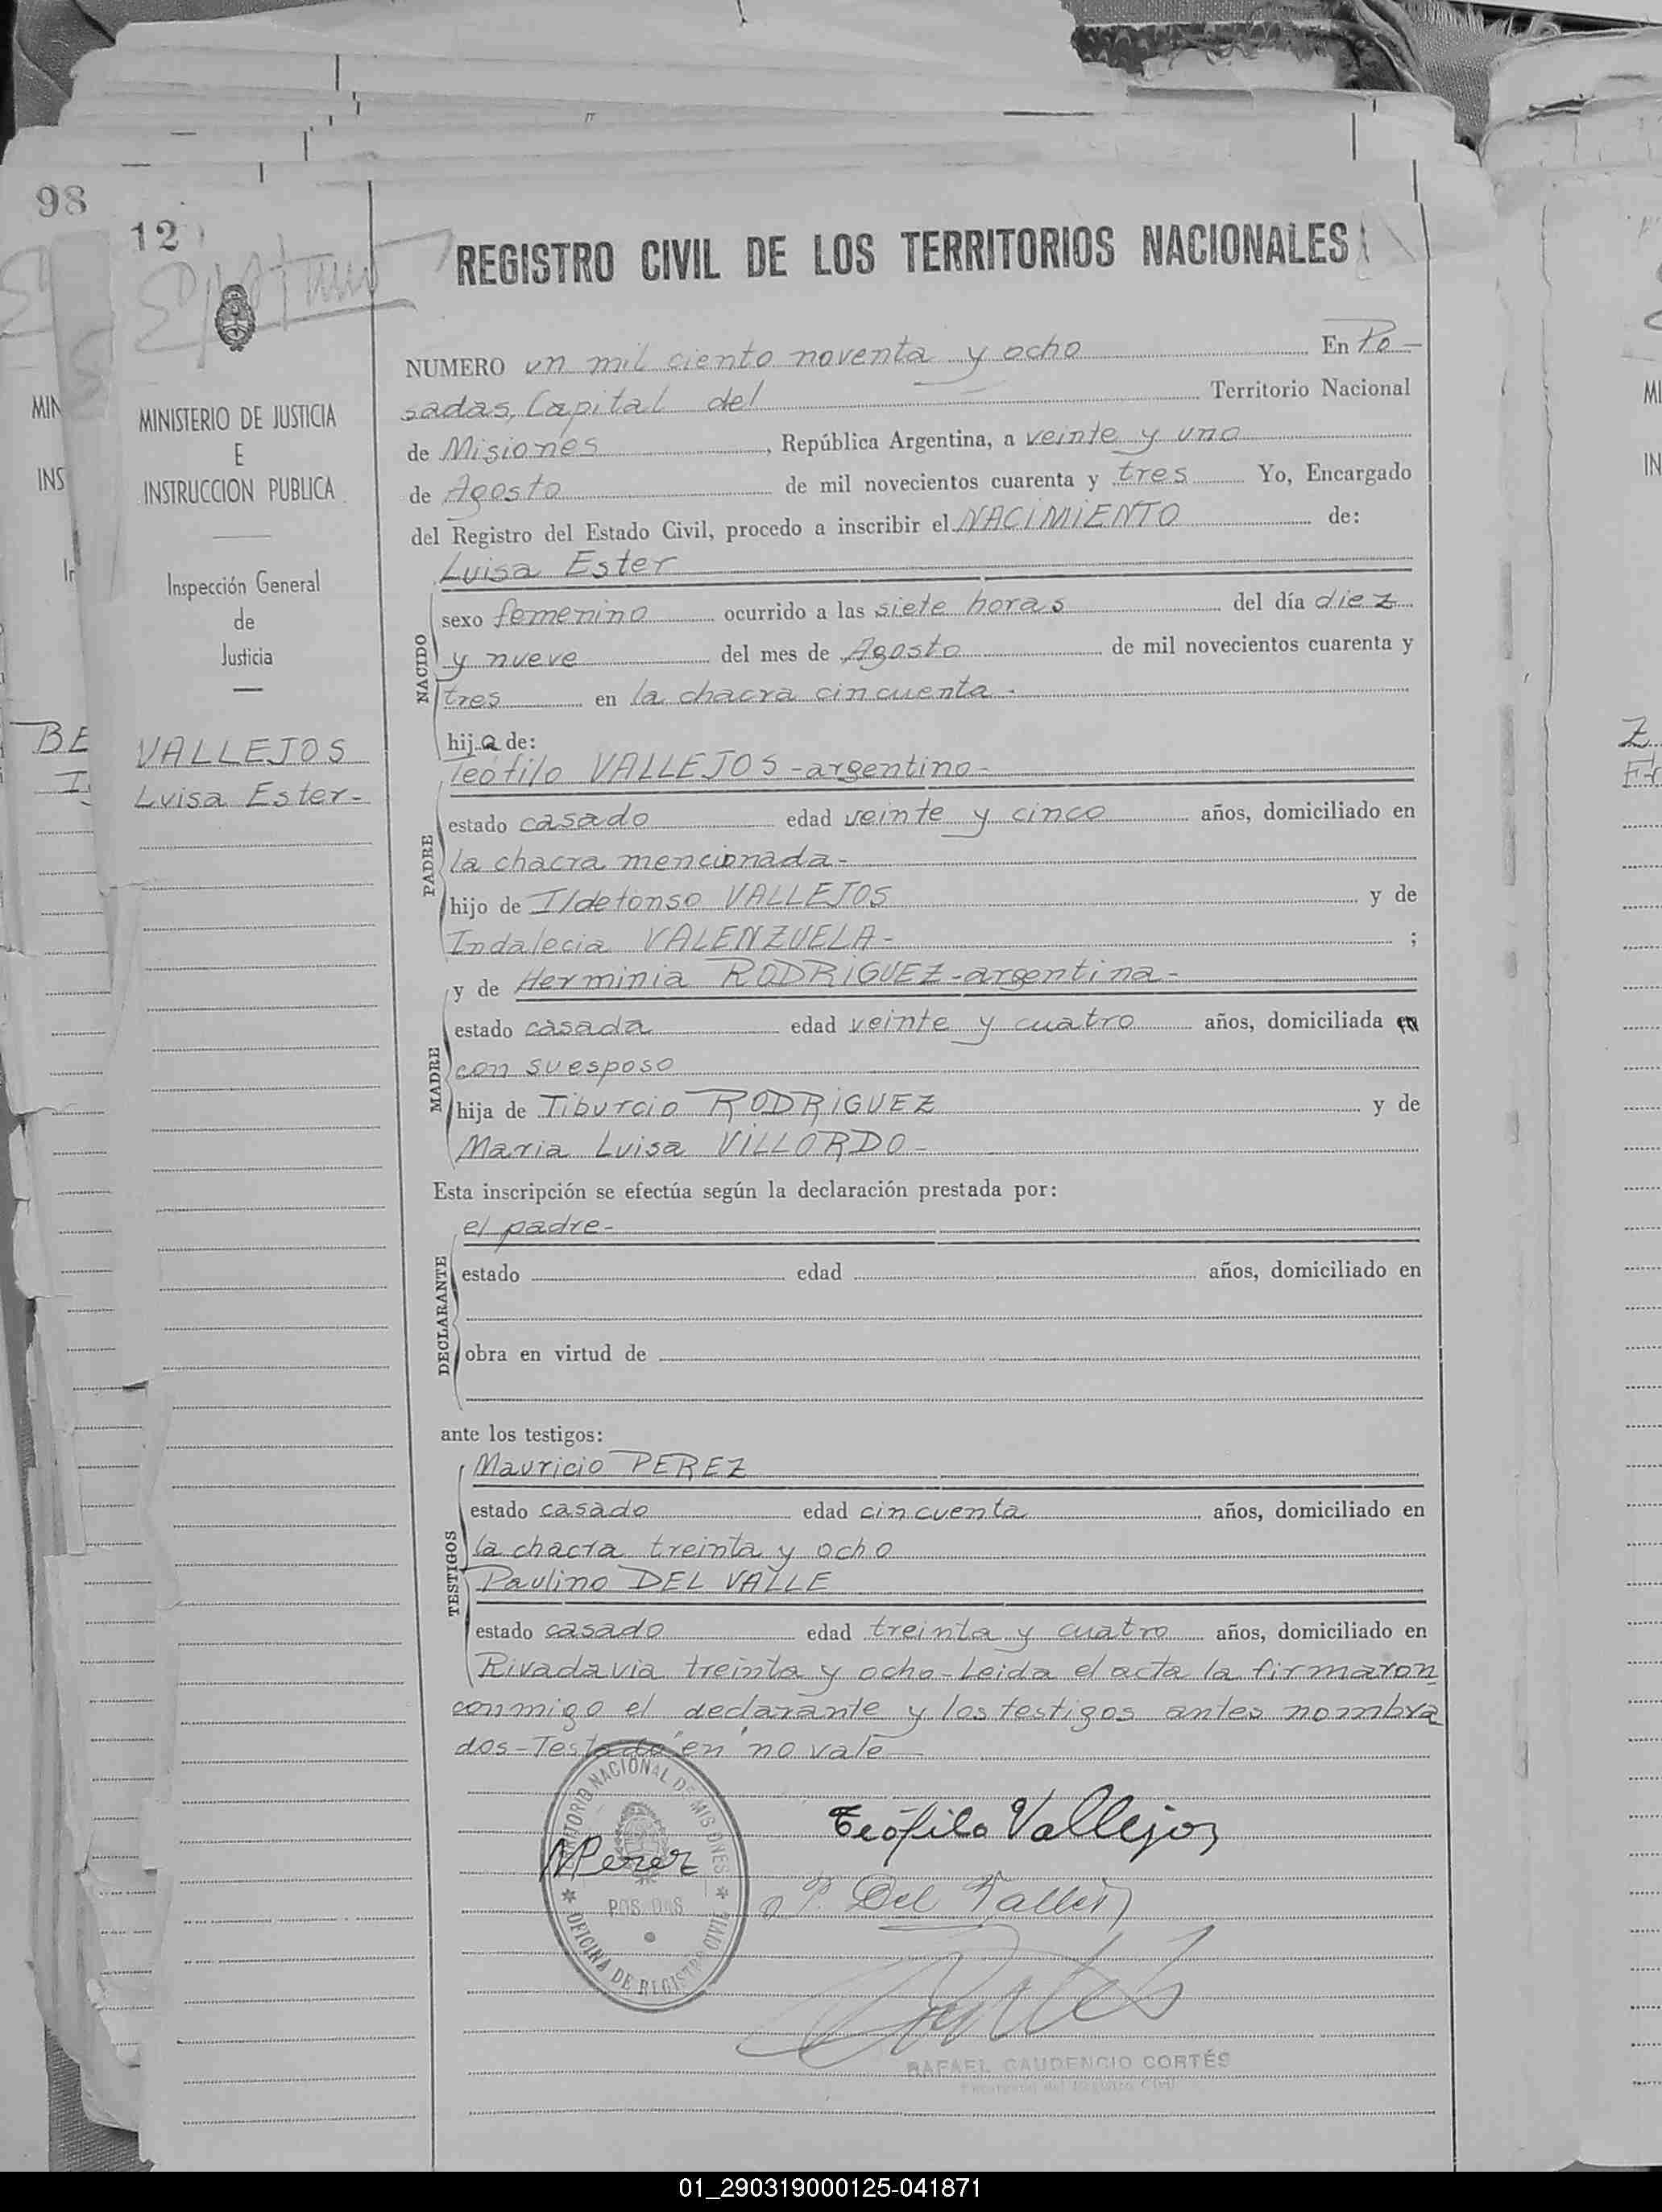 98
12
REGISTRO CIVIL DE LOS TERRITORIOS NACIONALES
MINISTERIO DE JUSTICIA
E
INSTRUCCION PUBLICA
Inspección General
de
Justicia
VALLEJOS
Luisa Ester-
NUMERO un mil ciento noventa y ocho En Po-
sadas, Capital del Territorio Nacional
de Misiones, República Argentina, a veinte y uno
de Agosto de mil novecientos cuarenta y tres Yo, Encargado
del Registro del Estado Civil, procedo a inscribir el NACIMIENTO de:
Luisa Ester
NACIDO
sexo femenino ocurrido a las siete horas del día diez
y nueve del mes de Agosto de mil novecientos cuarenta y
tres en la chacra cincuenta.
hija de:
Teófilo VALLEJOS-argentino-
PADRE
estado casado edad veinte y cinco años, domiciliado en
la chacra mencionada-
hijo de Ildefonso VALLEJOS y de
Indalecia VALENZUELA- ;
y de Herminia RODRIGUEZ-argentina-
MADRE
estado casada edad veinte y cuatro años, domiciliada en
con su esposo
hija de Tiburcio RODRIGUEZ y de
Maria Luisa VILLORDO-
Esta inscripción se efectúa según la declaración prestada por:
el padre-
DECLARANTE
estado edad años, domiciliado en
obra en virtud de
ante los testigos:
Mauricio PEREZ
TESTIGOS
estado casado edad cincuenta años, domiciliado en
la chacra treinta y ocho
Paulino DEL VALLE
estado casado edad treinta y cuatro años, domiciliado en
Rivadavia treinta y ocho-Leida el acta la firmaron
conmigo el declarante y los testigos antes nombra
dos-Testado "en" no vale
TERRITORIO NACIONAL DE MISIONES
POSADAS
OFICINA DE REGISTRO CIVIL
Teófilo Vallejos
MPerez
P. Del Valle
RAFAEL GAUDENCIO CORTÉS
Encargado del Registro Civil
01_290319000125-041871